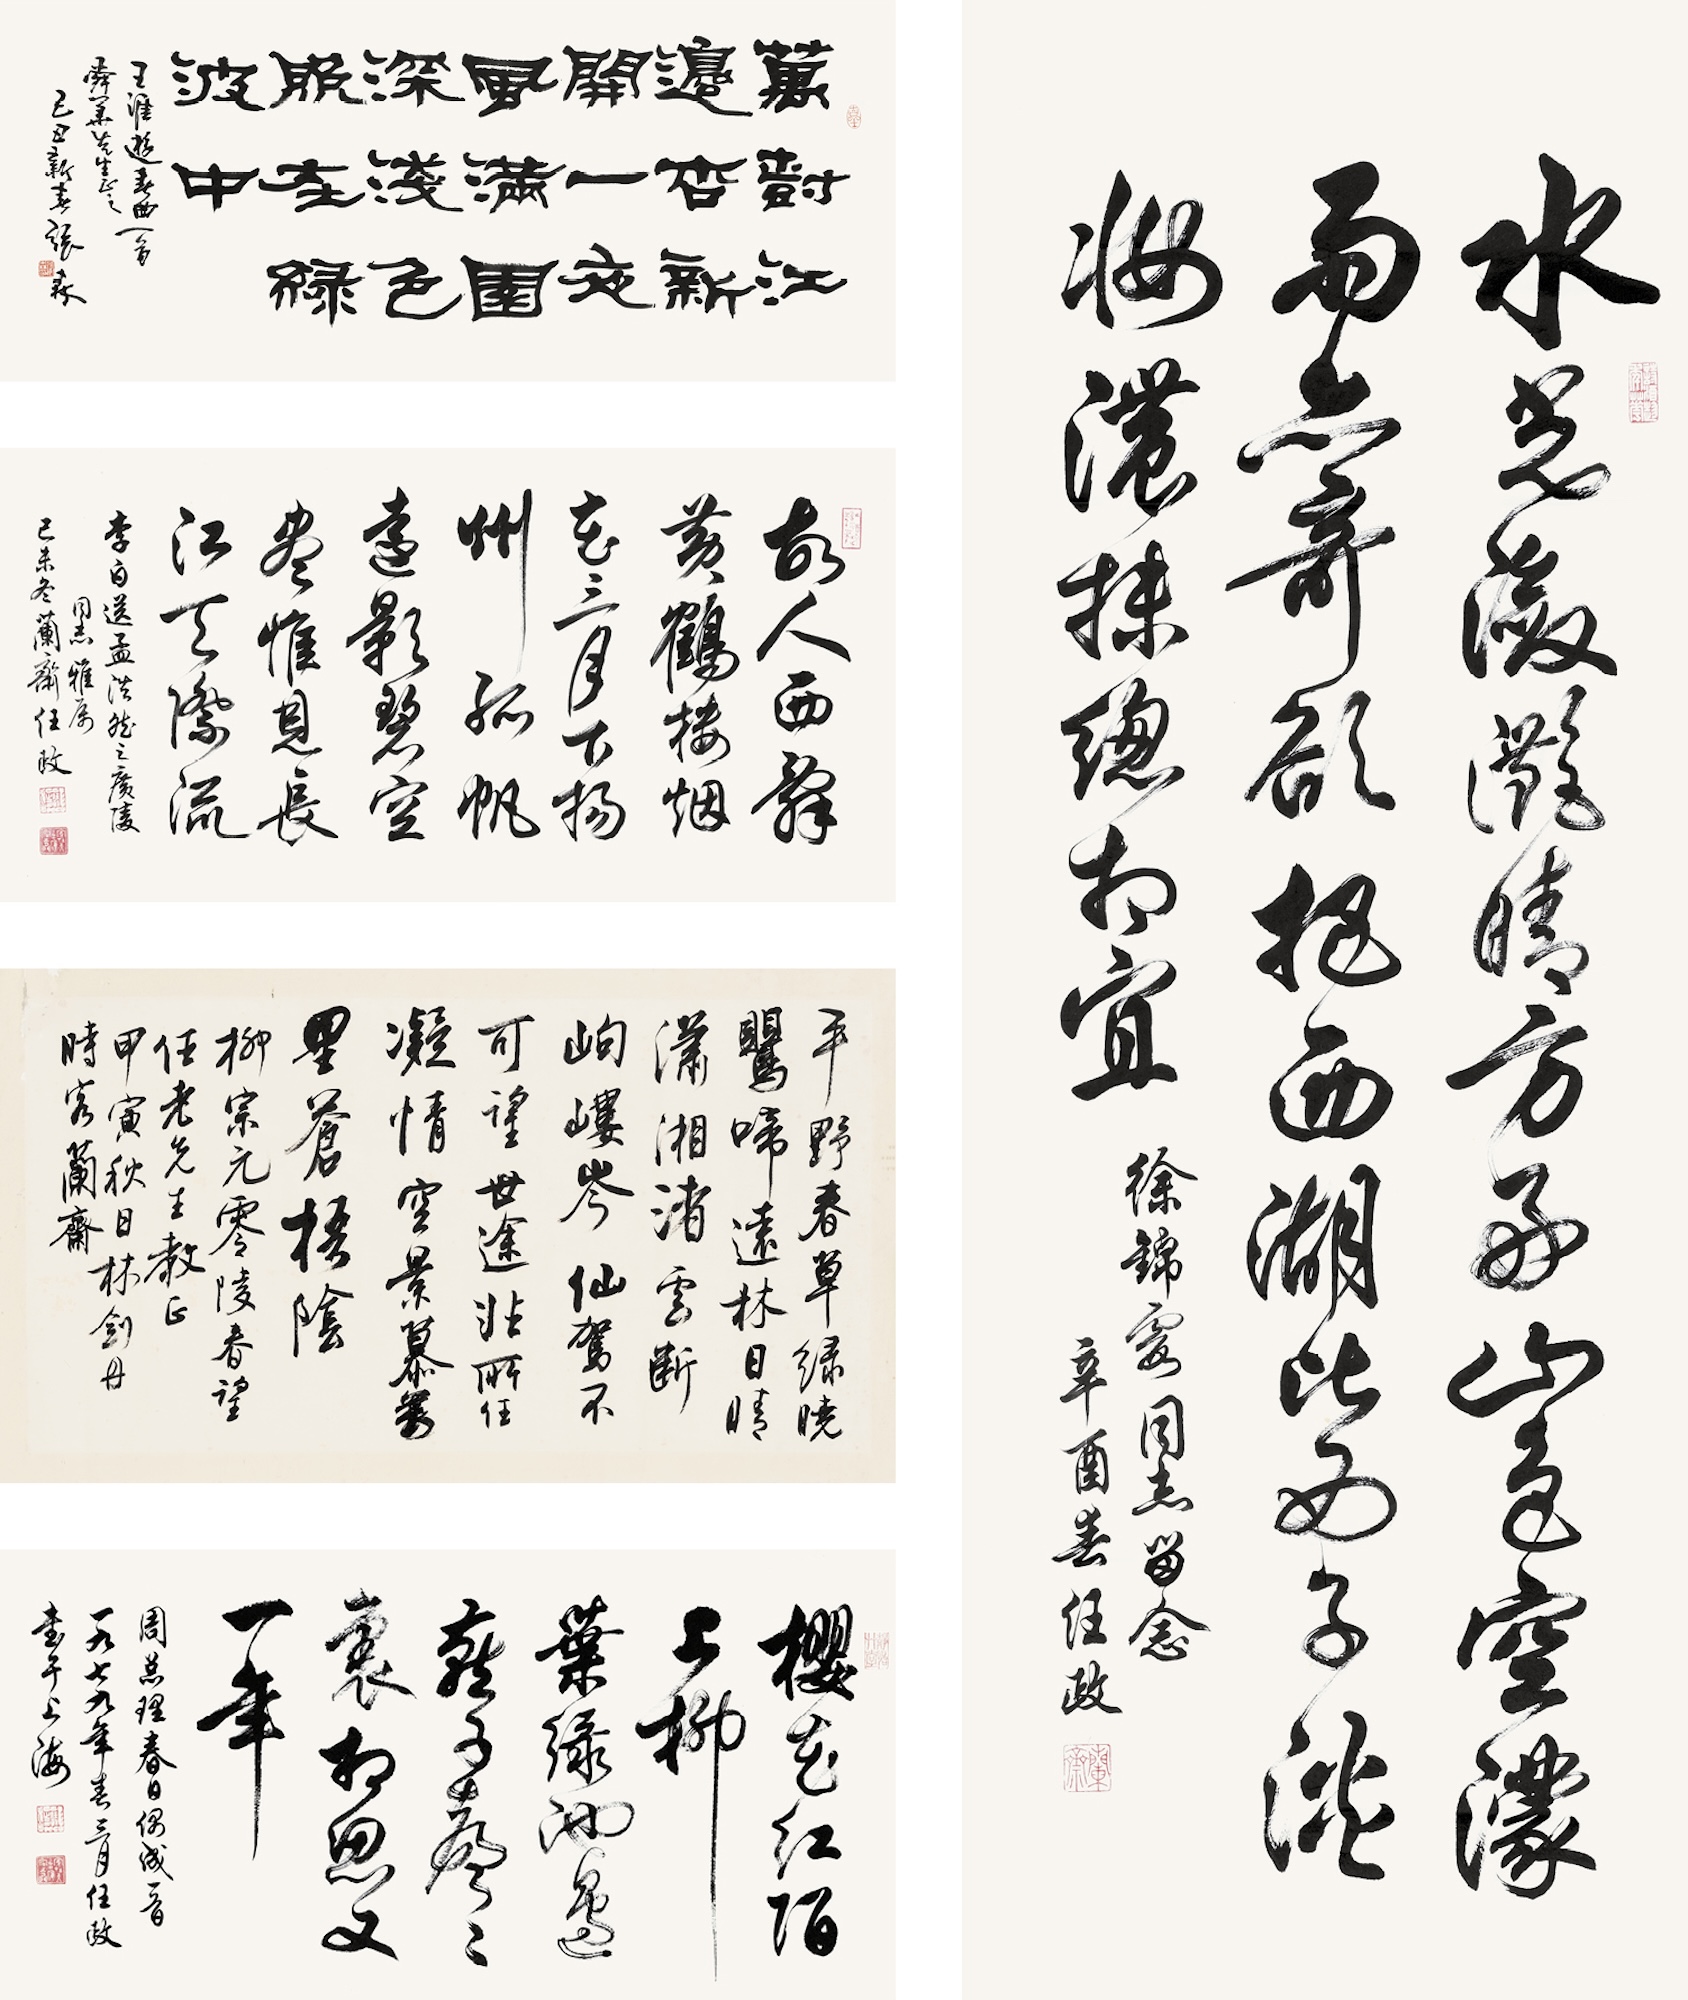 萬樹江
邊杏新
開一夜
風滿園
深淺色
在綠
波中
王涯遊春曲一首
舜華先生正之
己丑新春張森
故人西辭
黃鶴樓烟
花三月下揚
州孤帆
遠影碧空
盡惟見長
江天際流
李白送孟浩然之廣陵
同志雅屬
己未冬蘭齋任政
平野春草綠曉
鶯啼遠林日晴
瀟湘渚雲斷
岣嶁岑仙駕不
可望世途非所任
凝情空景慕萬
里蒼梧陰
柳宗元零陵春望
任老先生教正
甲寅秋日林劍丹
時客蘭齋
櫻花紅陌
上柳
葉綠池邊
燕子聲〻
裏相思又
一年
周总理春日偶成一首
一九七九年春三月任政
書于上海
水光瀲灩晴方好山色空濛
雨亦奇欲把西湖比西子淡
妝濃抹總相宜
徐錦同志留念
辛酉春任政